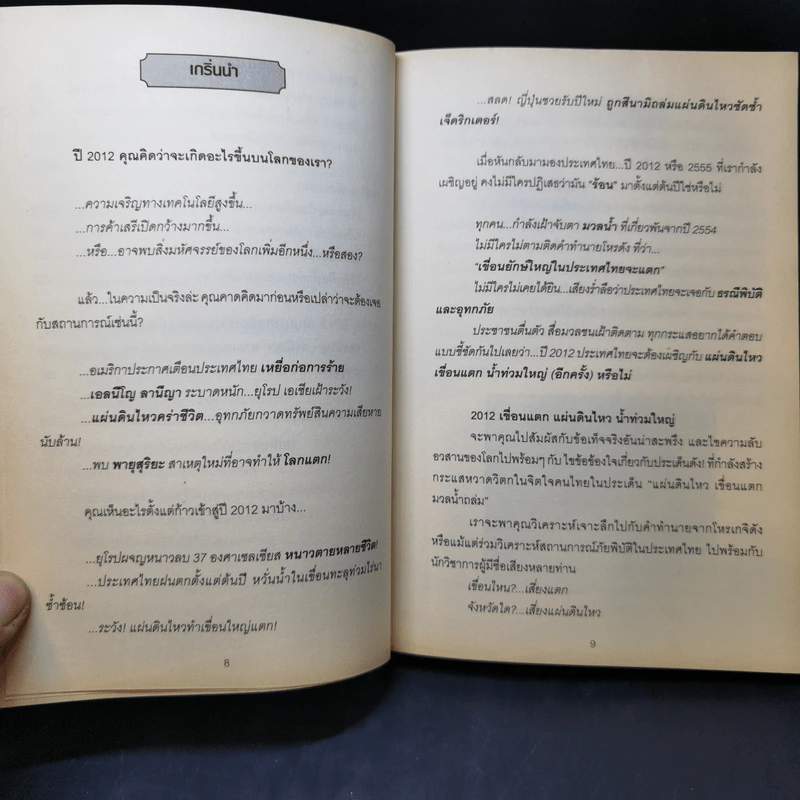 เกริ่นนำ
ปี 2012 คุณคิดว่าจะเกิดอะไรขึ้นบนโลกของเรา?
...ความเจริญทางเทคโนโลยีสูงขึ้น...
...การค้าเสรีเปิดกว้างมากขึ้น...
...หรือ...อาจพบสิ่งมหัศจรรย์ของโลกเพิ่มอีกหนึ่ง...หรือสอง?
แล้ว...ในความเป็นจริงล่ะ คุณคาดคิดมาก่อนหรือเปล่าว่าจะต้องเจอ
กับสถานการณ์เช่นนี้?
...อเมริกาประกาศเตือนประเทศไทย เหยื่อก่อการร้าย
...เอลนีโญ ลานีญา ระบาดหนัก...ยุโรป เอเชียเฝ้าระวัง!
...แผ่นดินไหวคร่าชีวิต...อุทกภัยกวาดทรัพย์สินความเสียหาย
นับล้าน!
...พบ พายุสุริยะ สาเหตุใหม่ที่อาจทำให้ โลกแตก!
คุณเห็นอะไรตั้งแต่ก้าวเข้าสู่ปี 2012 มาบ้าง...
...ยุโรปผจญหนาวลบ 37 องศาเซลเซียส หนาวตายหลายชีวิต!
...ประเทศไทยฝนตกตั้งแต่ต้นปี หวั่นน้ำในเขื่อนทะลุท่วมไร่นา
ซ้ำซ้อน!
...ระวัง! แผ่นดินไหวทำเขื่อนใหญ่แตก!
8
...สลด! ญี่ปุ่นซวยรับปีใหม่ ถูกสึนามิถล่มแผ่นดินไหวซัดซ้ำ
เจ็ดริกเตอร์!
เมื่อหันกลับมามองประเทศไทย...ปี 2012 หรือ 2555 ที่เรากำลัง
เผชิญอยู่ คงไม่มีใครปฏิเสธว่ามัน "ร้อน" มาตั้งแต่ต้นปีใช่หรือไม่
ทุกคน...กำลังเฝ้าจับตา มวลน้ำ ที่เกี่ยวพันจากปี 2554
ไม่มีใครไม่ตามติดคำทำนายโหรดัง ที่ว่า...
"เขื่อนยักษ์ใหญ่ในประเทศไทยจะแตก"
ไม่มีใครไม่เคยได้ยิน...เสียงร่ำลือว่าประเทศไทยจะเจอกับ ธรณีพิบัติ
และอุทกภัย
ประชาชนตื่นตัว สื่อมวลชนเฝ้าติดตาม ทุกกระแสอยากได้คำตอบ
แบบชี้ชัดกันไปเลยว่า...ปี 2012 ประเทศไทยจะต้องเผชิญกับ แผ่นดินไหว
เขื่อนแตก น้ำท่วมใหญ่ (อีกครั้ง) หรือไม่
2012 เขื่อนแตก แผ่นดินไหว น้ำท่วมใหญ่
จะพาคุณไปสัมผัสกับข้อเท็จจริงอันน่าสะพรึง และไขความลับ
อวสานของโลกไปพร้อมๆ กับ ไขข้อข้องใจเกี่ยวกับประเด็นดัง! ที่กำลังสร้าง
กระแสหวาดวิตกในจิตใจคนไทยในประเด็น "แผ่นดินไหว เขื่อนแตก
มวลน้ำถล่ม"
เราจะพาคุณวิเคราะห์เจาะลึกไปกับคำทำนายจากโหรเกจิดัง
หรือแม้แต่ร่วมวิเคราะห์สถานการณ์ภัยพิบัติในประเทศไทย ไปพร้อมกับ
นักวิชาการผู้มีชื่อเสียงหลายท่าน
เขื่อนไหน?...เสี่ยงแตก
จังหวัดใด?...เสี่ยงแผ่นดินไหว
9